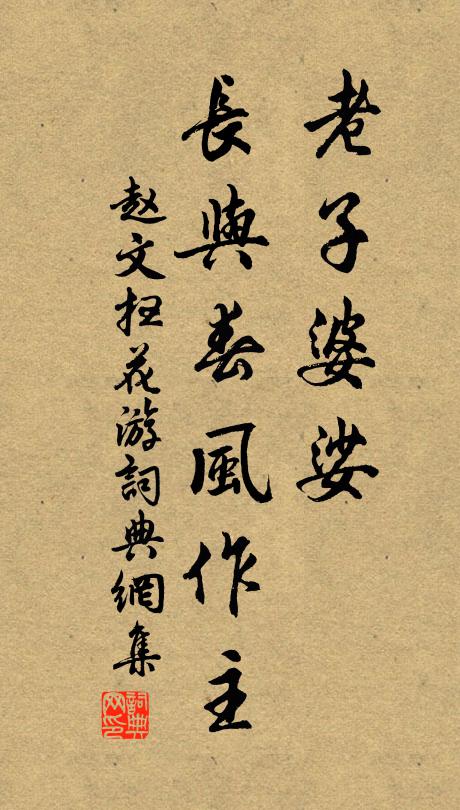 老子婆娑
長與春風作主
赵文扫花游詞典網集
詞典
网印